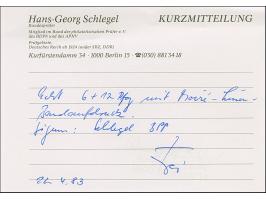 Hans-Georg Schlegel
KURZMITTEILUNG
Bundesprüfer
Mitglied im Bund der philatelistischen Prüfer e.V.
des BDPh und des APHV
Prüfgebiete:
Deutsches Reich ab 1924 (außer SBZ, DDR)
Kurfürstendamm 34 · 1000 Berlin 15 · ☎ (030) 8813418
Echt 6 + 12 Pfg mit
Signum: Schlegel BPP
4.83